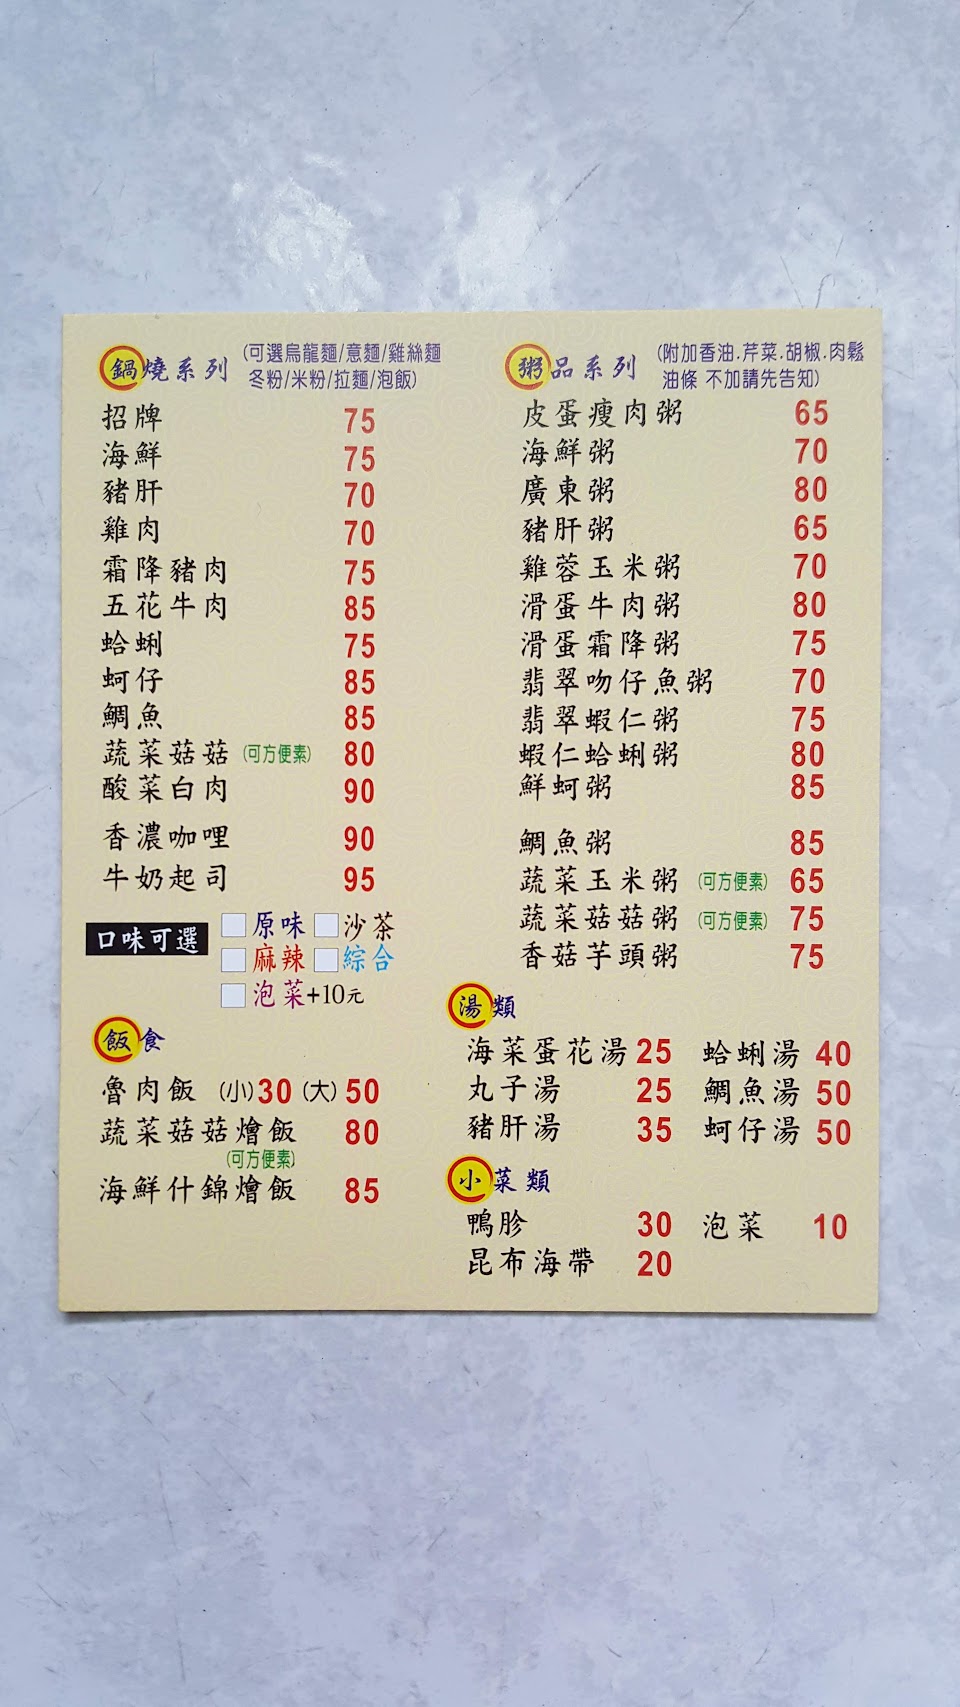 鍋燒系列 (可選烏龍麵/意麵/雞絲麵
冬粉/米粉/拉麵/泡飯)
招牌 75
海鮮 75
豬肝 70
雞肉 70
霜降豬肉 75
五花牛肉 85
蛤蜊 75
蚵仔 85
鯛魚 85
蔬菜菇菇 (可方便素) 80
酸菜白肉 90
香濃咖哩 90
牛奶起司 95
口味可選 原味 沙茶
麻辣 綜合
泡菜+10元
飯食
魯肉飯 (小)30 (大) 50
蔬菜菇菇燴飯 80
(可方便素)
海鮮什錦燴飯 85
粥品系列 (附加香油.芹菜.胡椒.肉鬆
油條 不加請先告知)
皮蛋瘦肉粥 65
海鮮粥 70
廣東粥 80
豬肝粥 65
雞蓉玉米粥 70
滑蛋牛肉粥 80
滑蛋霜降粥 75
翡翠吻仔魚粥 70
翡翠蝦仁粥 75
蝦仁蛤蜊粥 80
鮮蚵粥 85
鯛魚粥 85
蔬菜玉米粥 (可方便素) 65
蔬菜菇菇粥 (可方便素) 75
香菇芋頭粥 75
湯類
海菜蛋花湯 25 蛤蜊湯 40
丸子湯 25 鯛魚湯 50
豬肝湯 35 蚵仔湯 50
小菜類
鴨胗 30 泡菜 10
昆布海帶 20